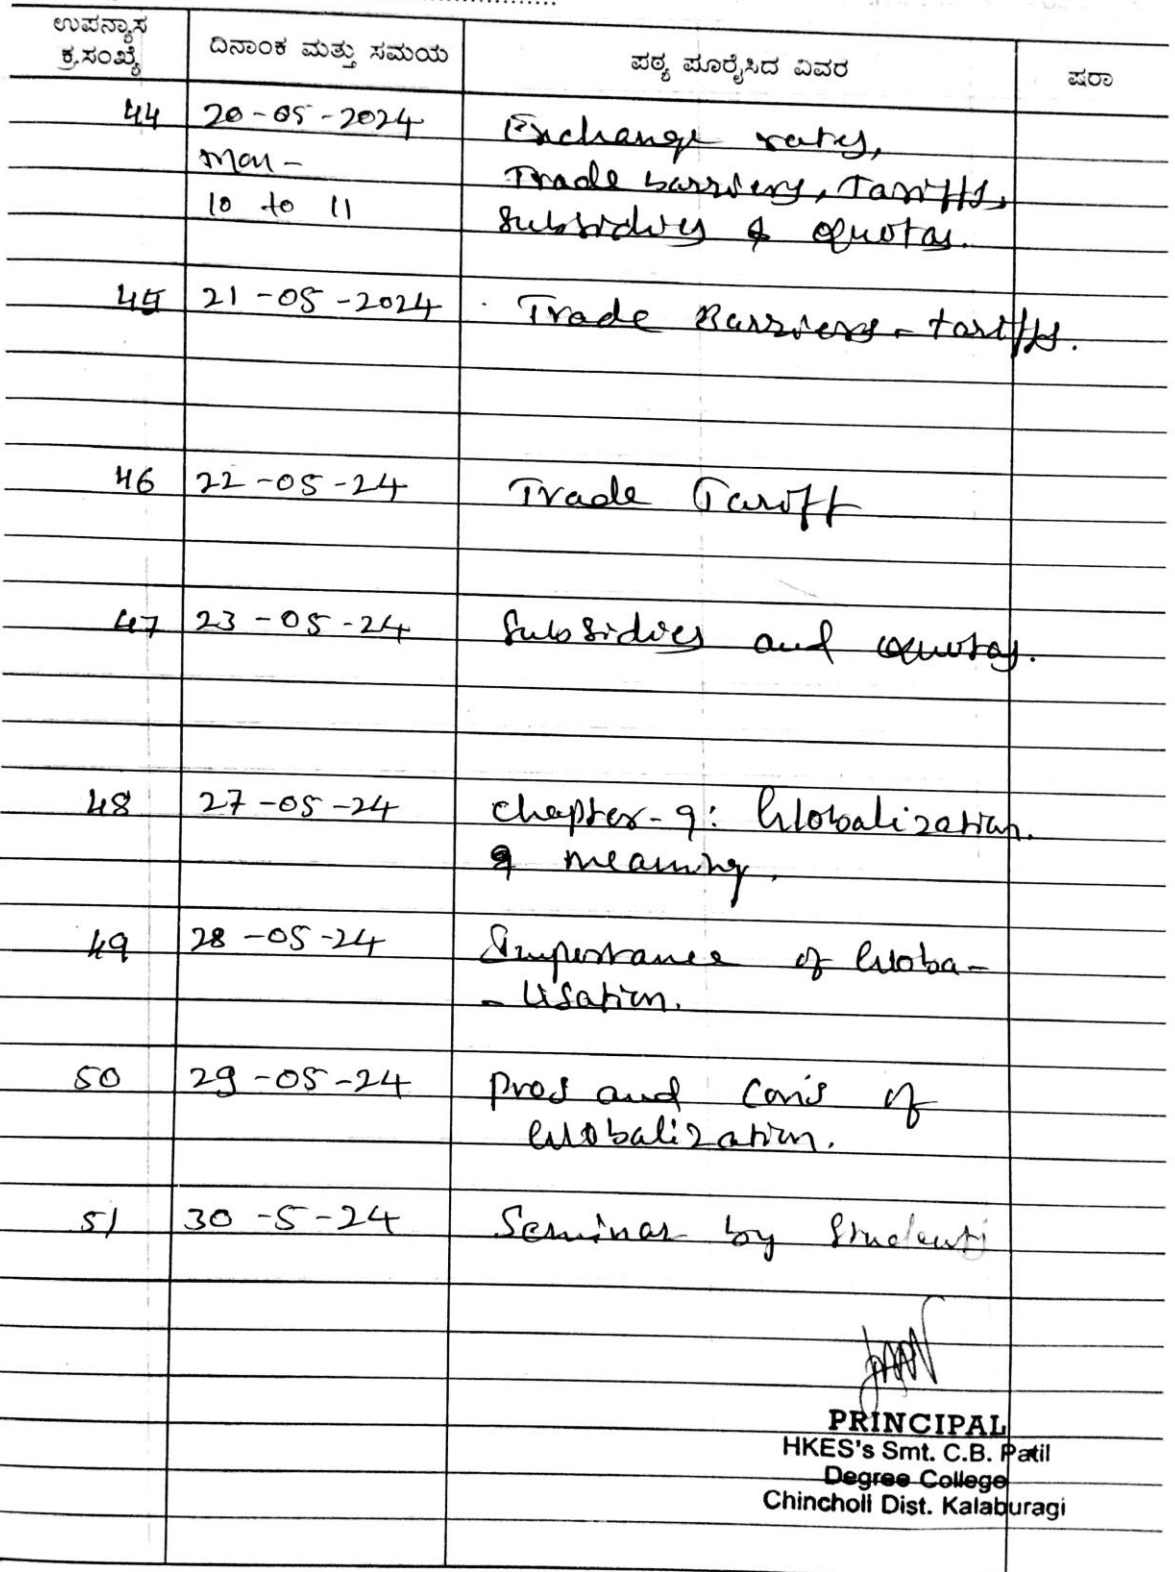 ಉಪನ್ಯಾಸ
ಕ್ರ.ಸಂಖ್ಯೆ
ದಿನಾಂಕ ಮತ್ತು ಸಮಯ
ಪಠ್ಯ ಪೂರೈಸಿದ ವಿವರ
ಷರಾ
44 20-05-2024 Exchange rates,
Mon- Trade barriers, Tariffs,
10 to 11 Subsidies & Quotas.
45 21-05-2024 Trade Barriers - tariffs.
46 22-05-24 Trade Tariff
47 23-05-24 Subsidies and Quotas.
48 27-05-24 Chapter-9: Globalization.
& meaning.
49 28-05-24 Importance of Globa-
-lisation.
50 29-05-24 Pros and Con's of
Globalization.
51 30-5-24 Seminar by Students
PRINCIPAL
HKES's Smt. C.B. Patil
Degree College
Chincholi Dist. Kalaburagi